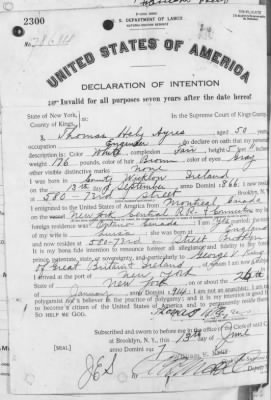 2300
U. S. DEPARTMENT OF LABOR
NATURALIZATION SERVICE
UNITED STATES OF AMERICA
DECLARATION OF INTENTION
Invalid for all purposes seven years after the date hereof
State of New York,
County of Kings, ss: In the Supreme Court of Kings County.
I, Thomas Hely Ayres, aged 50 years,
occupation Engineer, do declare on oath that my personal
description is: Color White, complexion Fair, height 5 feet
weight 176 pounds, color of hair Brown, color of eyes Gray
other visible distinctive marks None
I was born in County Wicklow Ireland
on the day of September, anno Domini 1866; I now reside
at 580-72nd Street
I emigrated to the United States of America from Montreal Canada
on the vessel New York Central RR
foreign residence was Canada; I am married; the name
of my wife is; she was born at England
and now resides at 580-72nd Street
It is my bona fide intention to renounce forever all allegiance and fidelity to any foreign
prince, potentate, state, or sovereignty, and particularly to George V King
of Great Britain & Ireland, of whom I am now a subject;
I arrived at the port of New York, in the
State of New York, on or about the 26th day
of January, anno Domini 1914; I am not an anarchist; I am not a
polygamist nor a believer in the practice of polygamy; and it is my intention in good faith
to become a citizen of the United States of America and to permanently reside therein:
SO HELP ME GOD.
Subscribed and sworn to before me in the office of the Clerk of said Court
at Brooklyn, N. Y., this 13th day of June
anno Domini 1917
[SEAL]